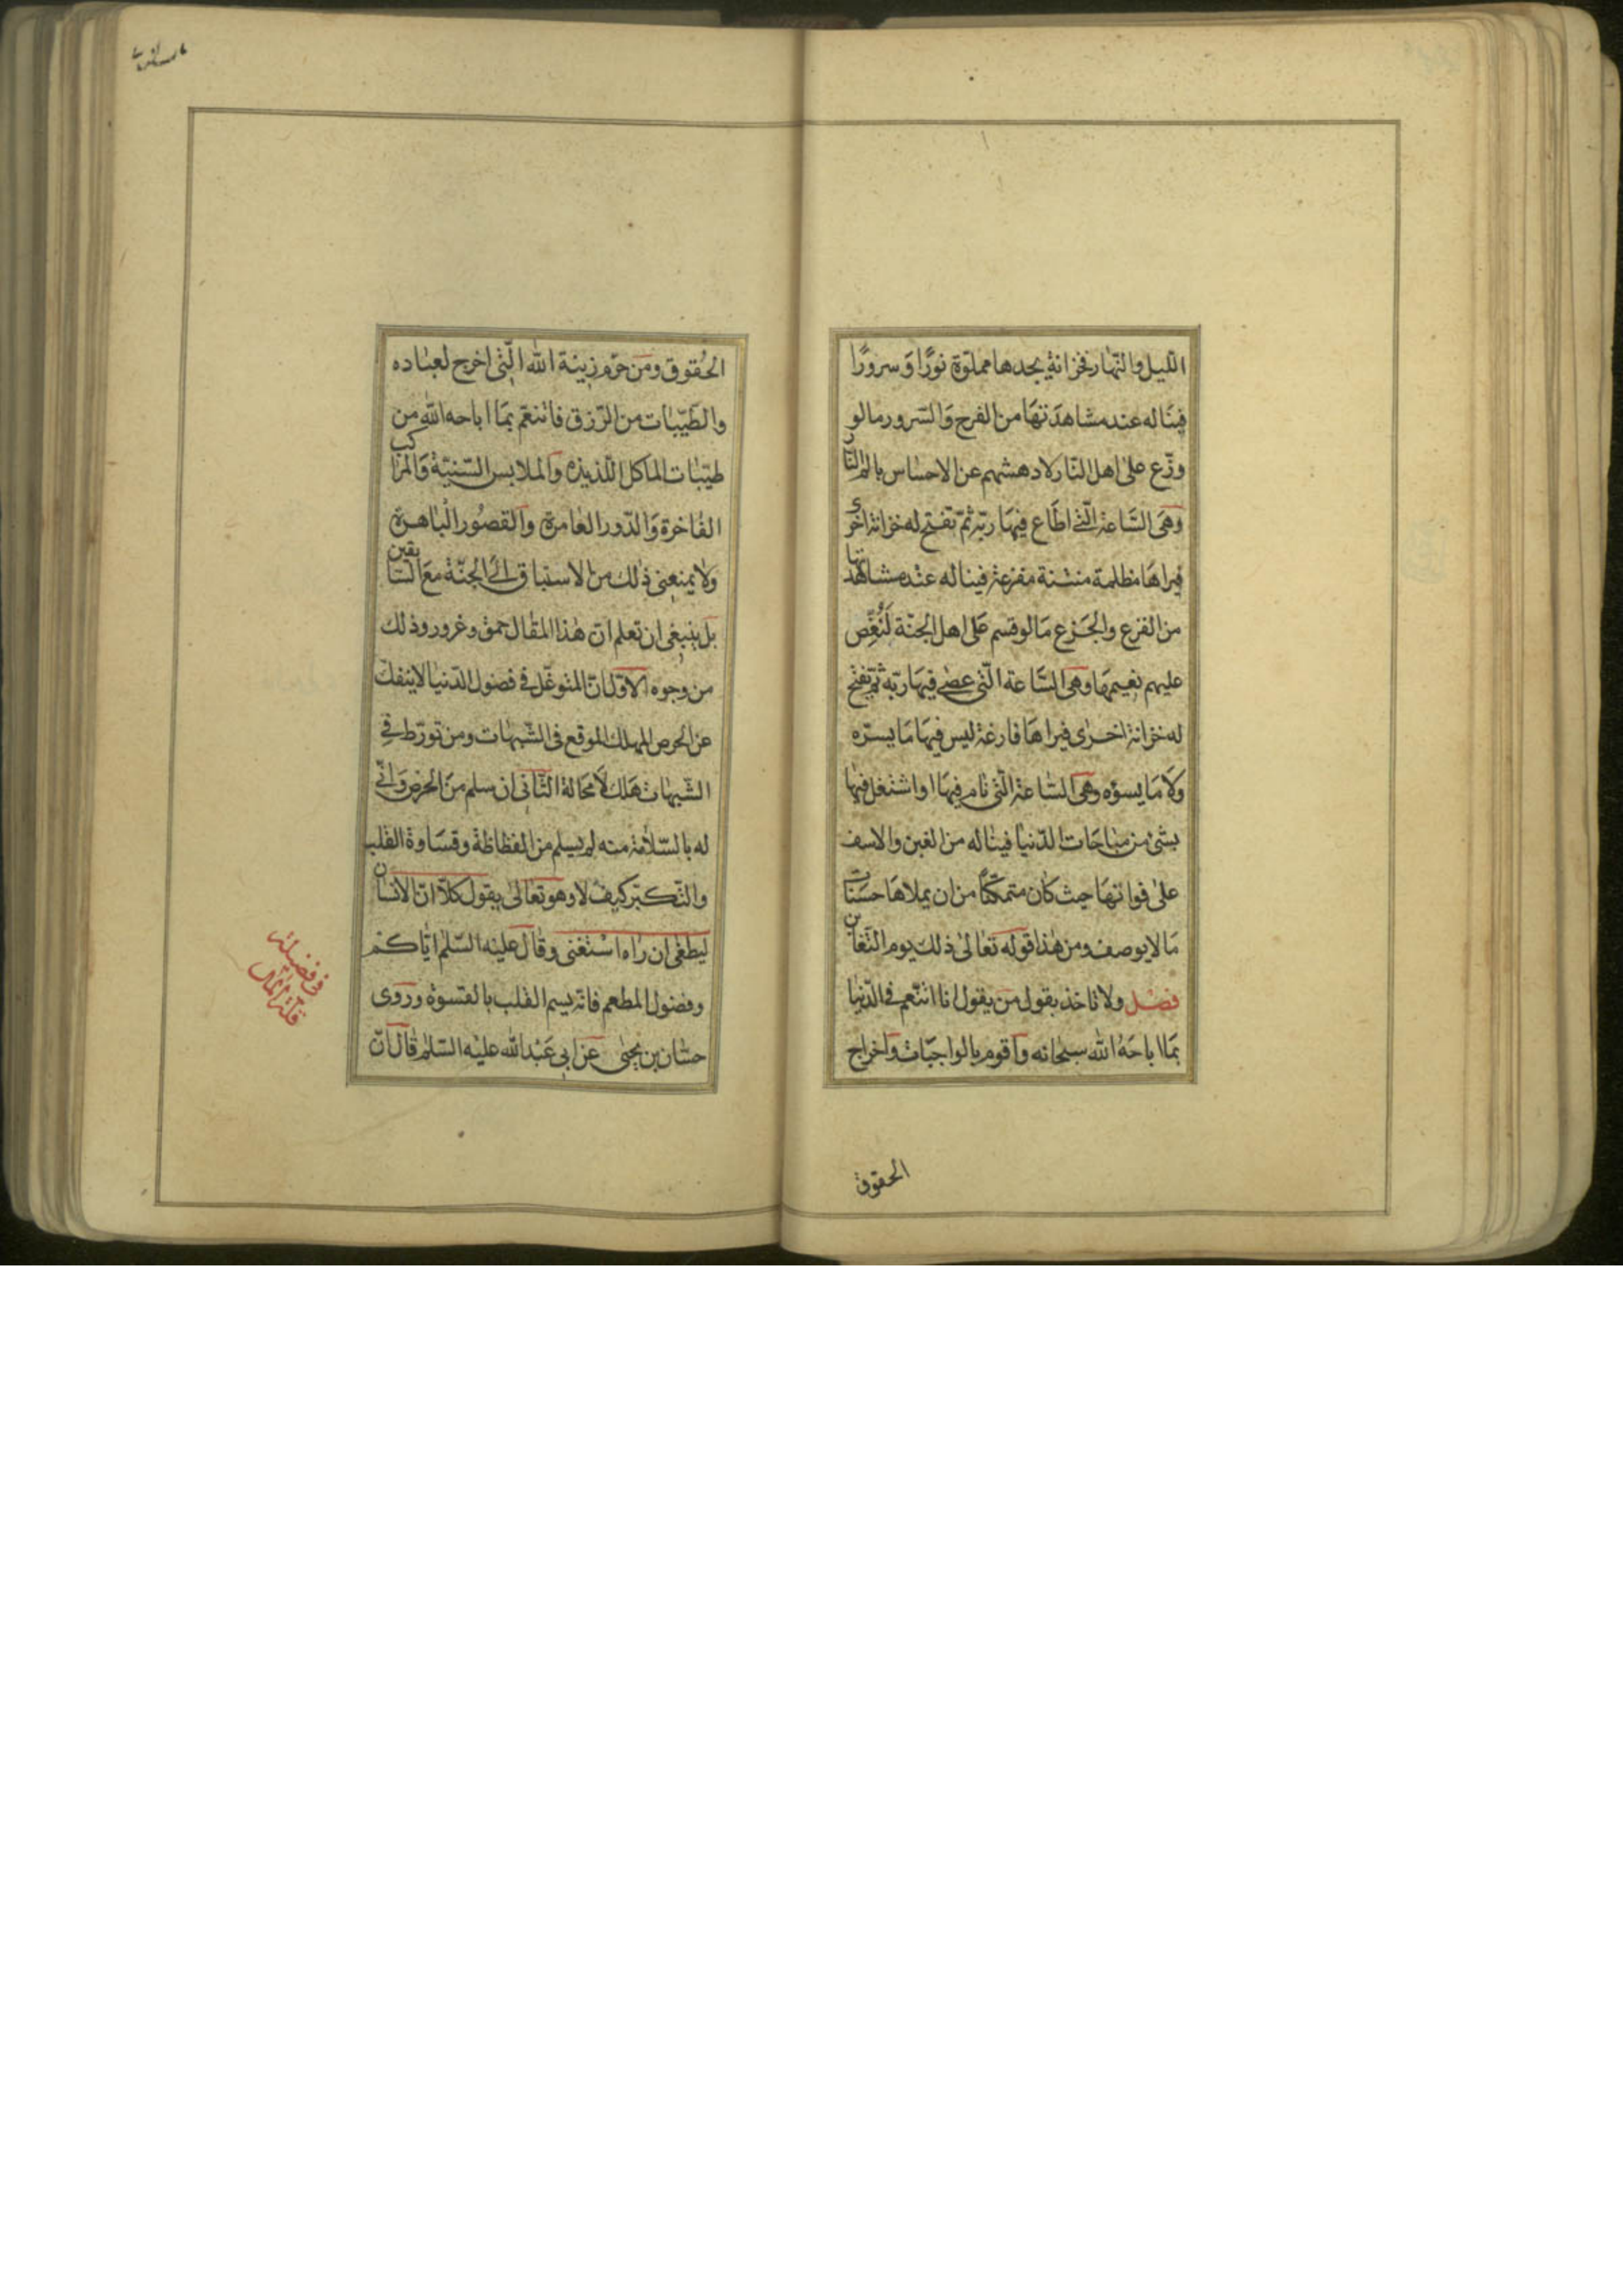 اللّيل والنّهار فخزانة يجدها مملوّة نورًا وسرورًا
فيناله عند مشاهدتها من الفرح والسّرور مالو
وزّع على اهل النّار لادهشهم عن الاحساس بالم النّار
وهى السّاعة الّتى اطاع فيها ربّه ثمّ تفتح له خزانة اخرى
فيراها مظلمة منتنة مفزعة فيناله عند مشاهدتها
من الفزع والجزع مالو قسم على اهل الجنّة لنغّص
عليهم نعيمها وهى السّاعة الّتى عصى فيها ربّه ثمّ تفتح
له خزانة اخرى فيراها فارغة ليس فيها ما يسرّه
ولا ما يسوؤه وهى السّاعة الّتى نام فيها او اشتغل فيها
بشئ من مباحات الدّنيا فيناله من الغبن والاسف
على فواتها حيث كان متمكّنًا من ان يملاها حسنات
ما لا يوصف ومن هذا قوله تعالى ذلك يوم التّغابن
فصل ولا تاخذ بقول من يقول انا اتنعّم فى الدّنيا
بما اباحه الله سبحانه واقوم بالواجبات واخراج
الحقوق
الحقوق ومن حرّم زينة الله الّتى اخرج لعباده
والطّيّبات من الرّزق فاتنعّم بما اباحه الله من
طيّبات الماكل اللّذيذه والملابس السّنيّة والمراكب
الفاخرة والدّور العامرة والقصور الباهرة
ولا يمنعنى ذلك من الاستباق الى الجنّة مع السّابقين
بل ينبغى ان تعلم انّ هذا المقال حمق وغرور وذلك
من وجوه الاوّل انّ المتوغّل فى فضول الدّنيا لا ينفكّ
عن الحرص المهلك الموقع فى الشّبهات ومن تورّط فى
الشّبهات هلك لا محالة الثّانى ان سلم من الحرص وانّى
له بالسّلامة منه لم يسلم من الفظاظة وقساوة القلب
والتّكبّر كيف لا وهو تعالى يقول كلّا انّ الانسان
ليطغى ان راه استغنى وقال عليه السّلم ايّاكم
وفضول المطعم فانّه يسم القلب بالقسوة وروى
حسّان بن يحيى عن ابى عبد الله عليه السّلم قال انّ
فى فضيلة
قلّة المال